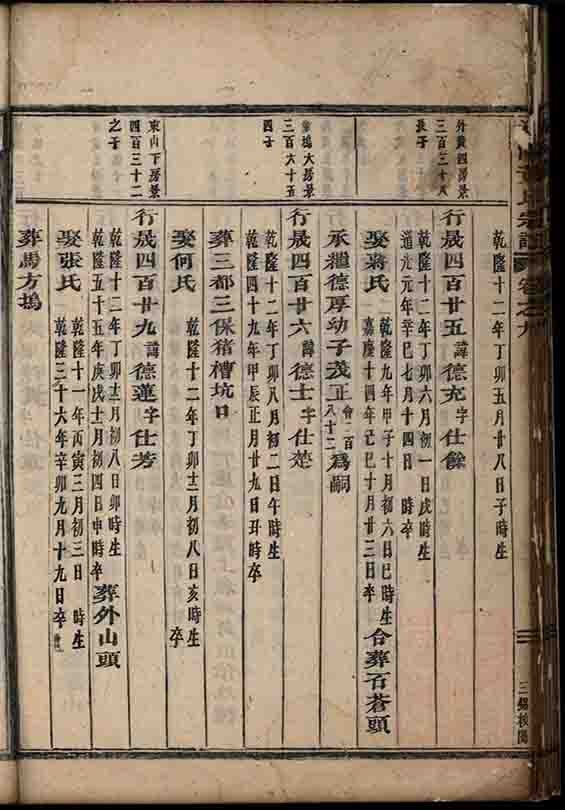 宗譜
卷之九
乾隆十二年丁卯五月廿八日子時生
外黃四房景
三百三十八
長子
行晟四百廿五諱德充字仕餘
乾隆十二年丁卯六月初一日戌時生
道光元年辛巳七月十四日 時卒
娶蔣氏
乾隆九年甲子十月初六日巳時生
嘉慶十四年己巳十月廿三日 卒
合葬石蒼頭
承繼德厚幼子茂正會二百八十二為嗣
塢大房景
三百六十五
四子
行晟四百廿六諱德士字仕楚
乾隆十二年丁卯八月初二日午時生
乾隆四十九年甲辰正月廿九日丑時卒
葬三都三保猪槽坑口
娶何氏
乾隆十二年丁卯十二月初八日亥時生
卒
東山下房景
四百三十二
之子
行晟四百廿九諱德蓮字仕芳
乾隆十二年丁卯十二月初八日卯時生
乾隆五十五年庚戌十二月初四日申時卒
葬外山頭
娶張氏
乾隆十一年丙寅三月初三日 時生
乾隆三十六年辛卯九月十九日卒
葬馬方塢